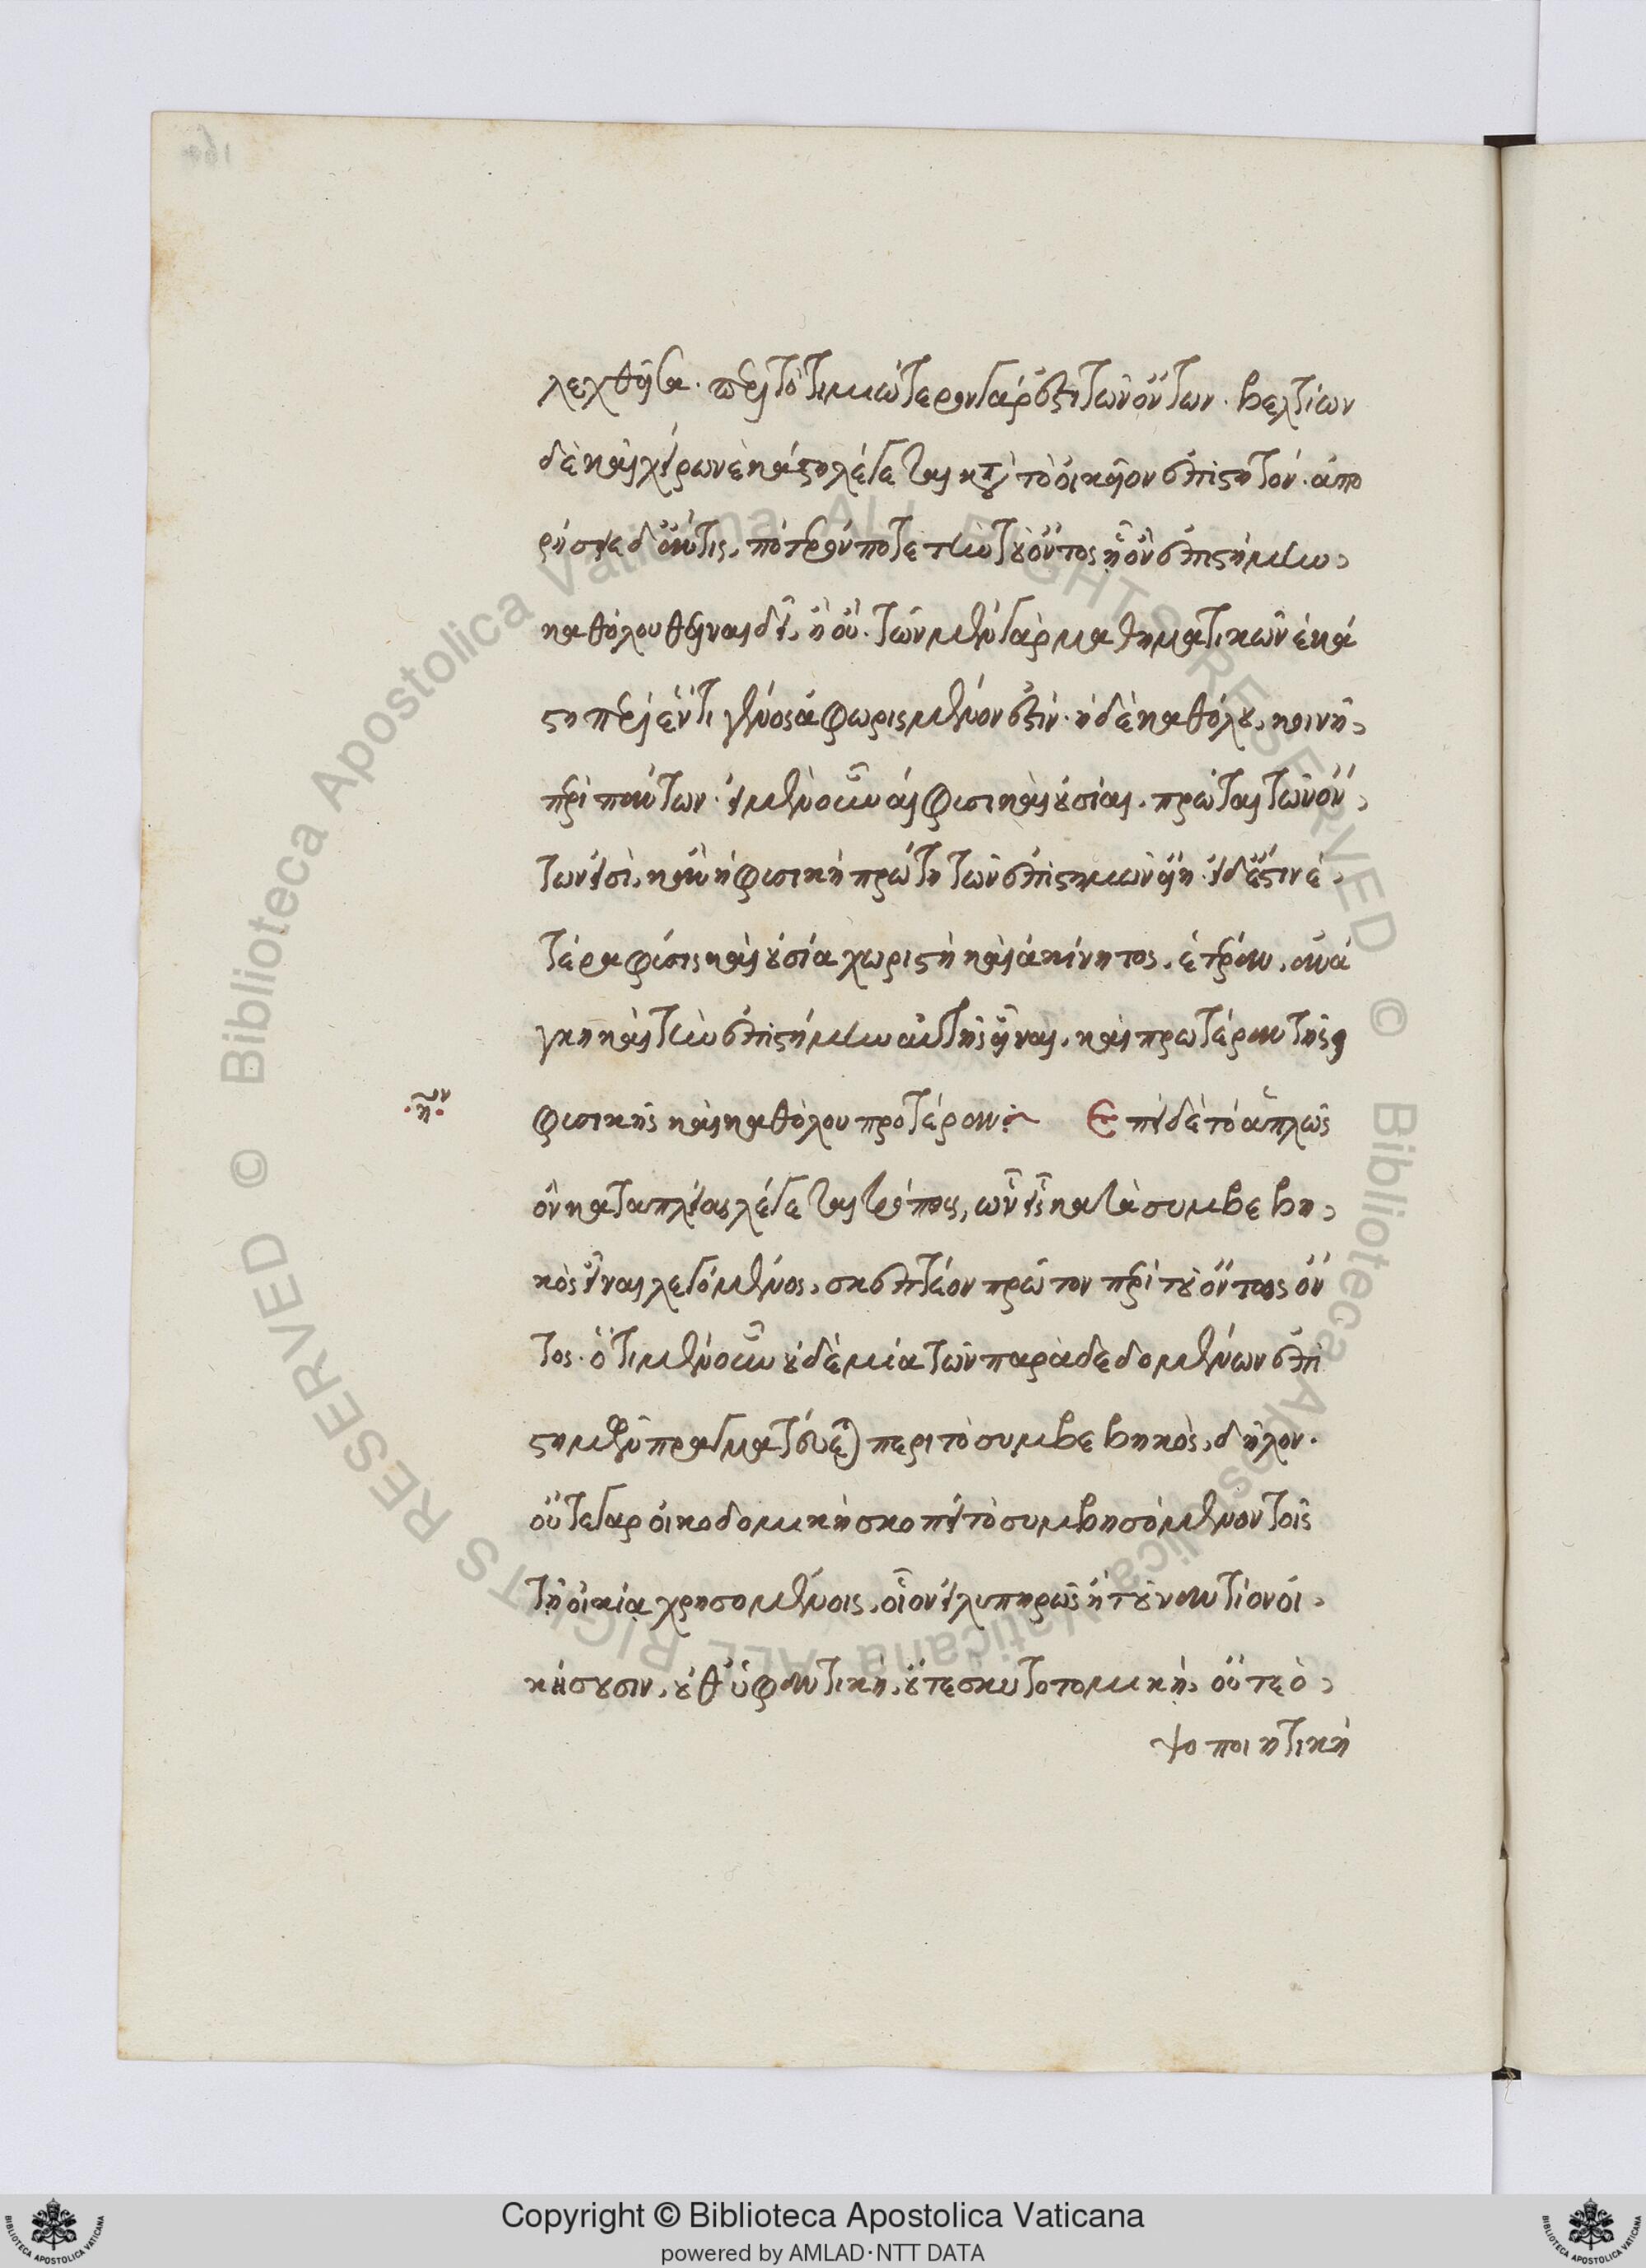 λεχθεῖσα. περὶ τὸ τιμιώτερον γάρ ἐστι τῶν ὄντων. βελτίων
δὲ καὶ χείρων ἑκάστη λέγεται κατὰ τὸ οἰκεῖον ἐπιστητόν. ἀπο
ρήσειε δ' ἄν τις, πότερόν ποτε τὴν τοῦ ὄντος ᾗ ὂν ἐπιστήμην
καθόλου θεῖναι δεῖ, ἢ οὔ. τῶν μὲν γὰρ μαθηματικῶν ἑκά
στη περὶ ἕν τι γένος ἀφωρισμένον ἐστίν. ἡ δὲ καθόλου, κοινὴ
περὶ πάντων. εἰ μὲν οὖν αἱ φυσικαὶ οὐσίαι, πρῶται τῶν ὄν
των εἰσὶ, κἂν ἡ φυσικὴ πρώτη τῶν ἐπιστημῶν εἴη. εἰ δ' ἔστιν ἑ
τέρα φύσις καὶ οὐσία χωριστὴ καὶ ἀκίνητος, ἑτέραν, ἀνά
γκη καὶ τὴν ἐπιστήμην αὐτῆς εἶναι, καὶ πρωτέραν τῆς
φυσικῆς καὶ καθόλου προτέραν. Ἐπεὶ δὲ τὸ ἁπλῶς
ὂν κατὰ πλείους λέγεται τρόπους, ὧν εἷς κατὰ συμβεβη
κὸς εἶναι λεγόμενος, σκεπτέον πρῶτον περὶ τοῦ οὕτως ὄν
τος. ὅτι μὲν οὖν οὐδεμία τῶν παραδεδομένων ἐπι
στημῶν πραγματεύεται περὶ τὸ συμβεβηκὸς, δῆλον.
οὔτε γὰρ οἰκοδομικὴ σκοπεῖ τὸ συμβησόμενον τοῖς
τῇ οἰκίᾳ χρησομένοις, οἷον εἰ λυπηρῶς ἢ τοὐναντίον οἰ
κήσουσιν, οὔθ' ὑφαντική, οὔτε σκυτοτομική, οὔτε ὀ
ψοποιητική
Copyright © Biblioteca Apostolica Vaticana
powered by AMLAD·NTT DATA